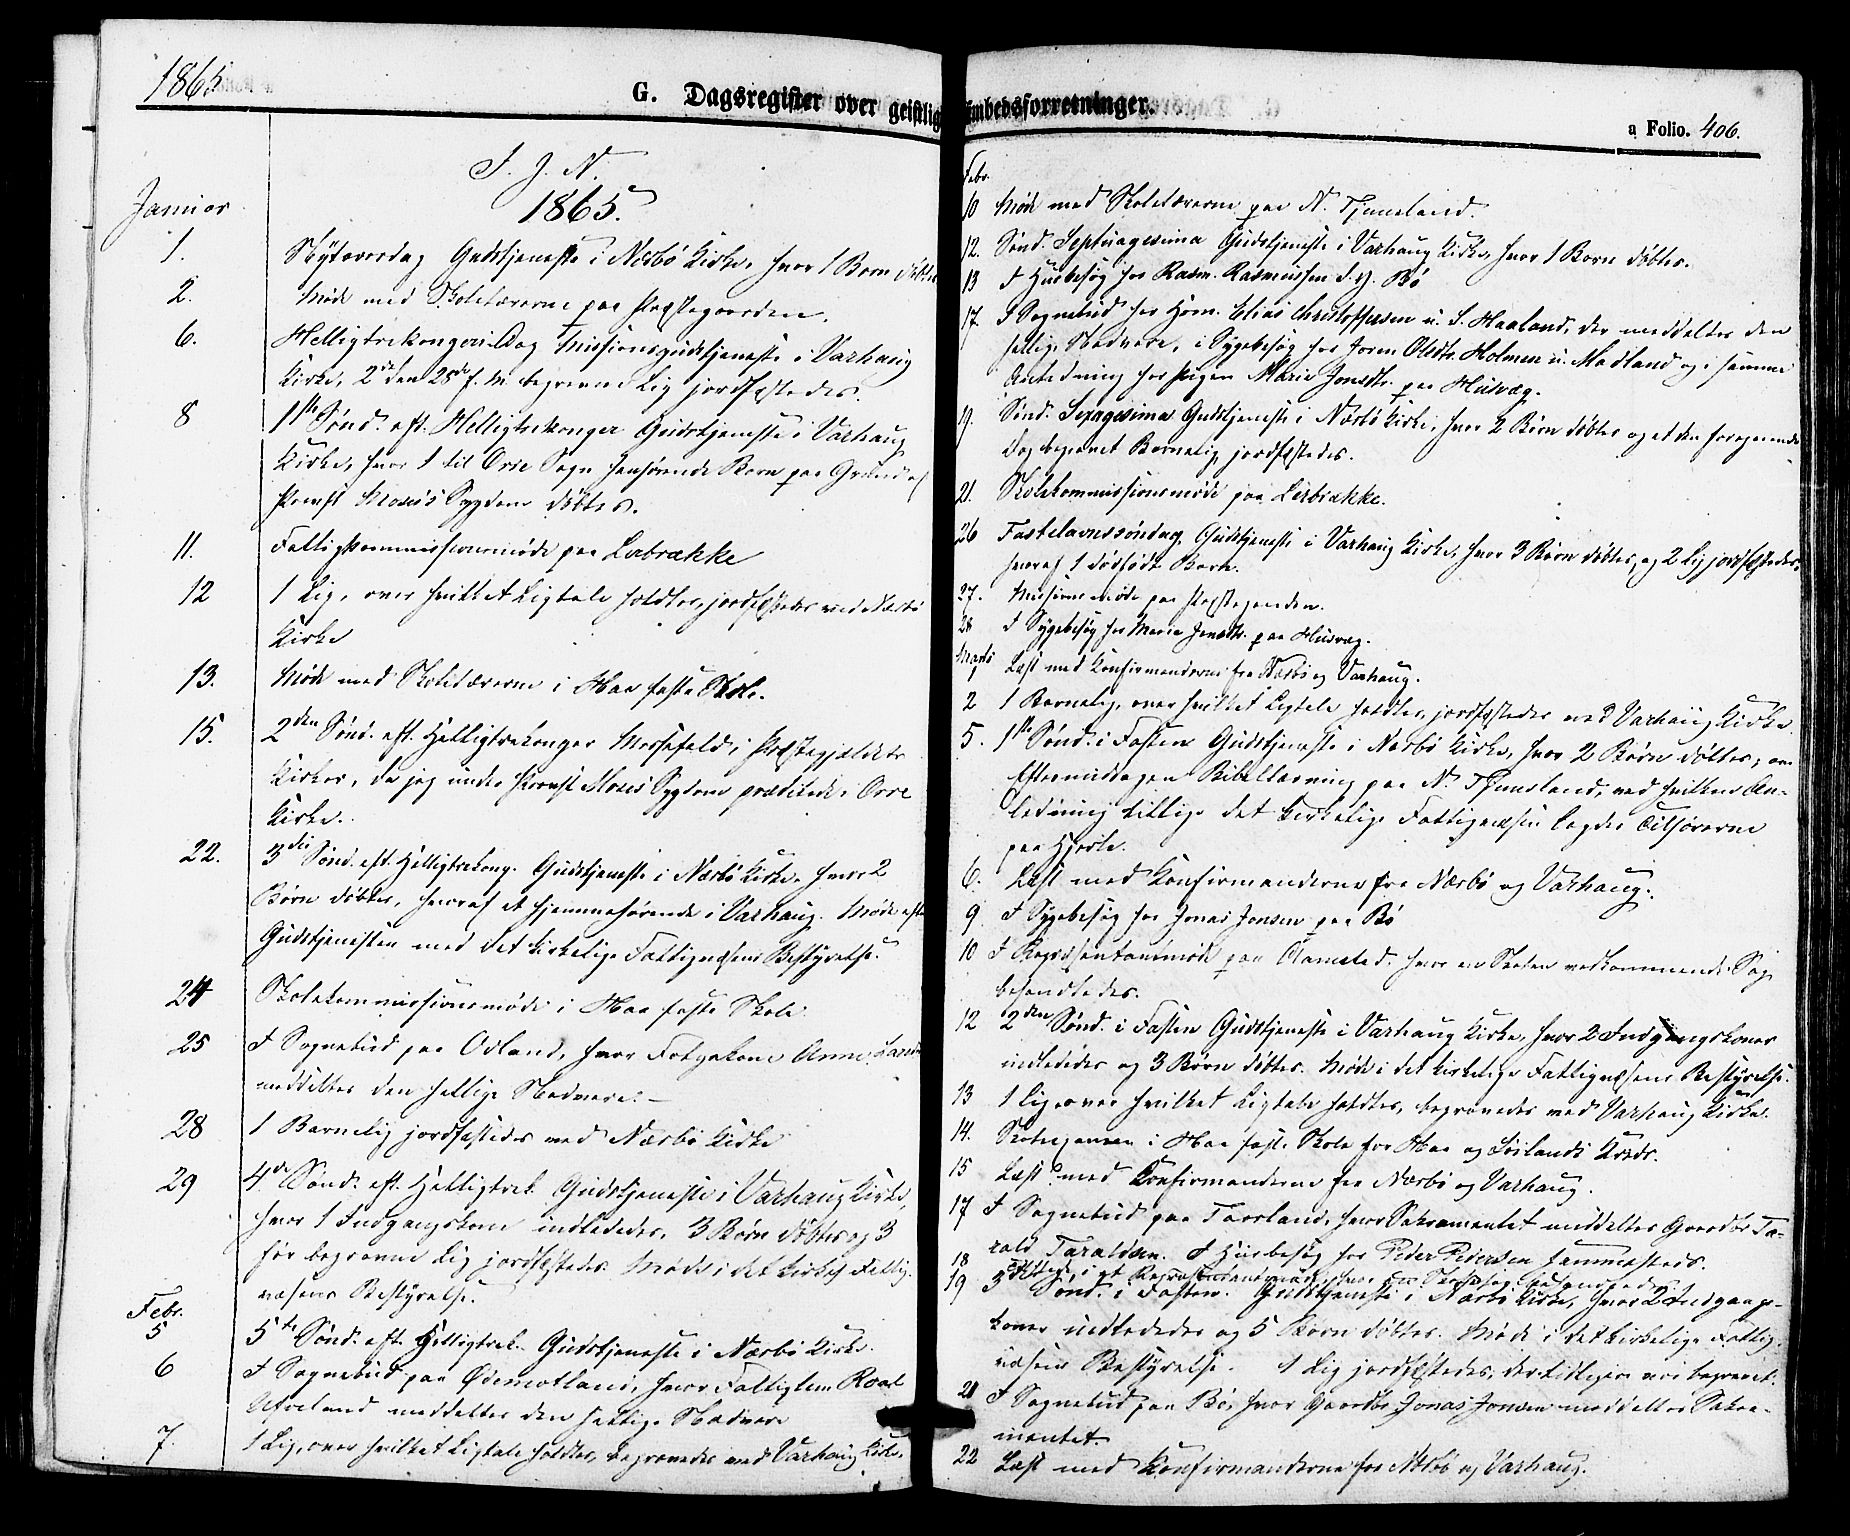 1865
G. Dagsregister over geistlig
I. J. N.
1865.
Januar
1. Nytaarsdag Gudstjeneste i Nærbö Kirke, hvor 1 Barn döbtes
2. Möde med Skolelærerne paa Præstegaarden.
6. Helligtrekongers Dag Missionsgudstjeneste i Varhaug
Kirke, 2de den 28de f. M. begravne Lig jordfæstedes.
8 1ste Sönd. eft. Helligtrekonger Gudstjeneste i Varhaug
Kirke, hvor 1 til Orre Sogn henhörende Barn paa Grund af
Provst Moses's Sygdom döbtes.
11. Fattigkommissionsmöde paa Lerbrække
12 1 Lig, over hvilket Ligtale holdtes, jordfæstedes ved Nærbö
Kirke
13. Möde med Skolelærerne i Haa faste Skole.
15. 2den Sönd. eft. Helligtrekonger Messefald i Præstegjeldets
Kirker, da jeg under Provst Moses's Sygdom prædikede i Orre
Kirke.
22. 3die Sönd. eft. Helligtrekong. Gudstjeneste i Nærbö Kirke, hvor 2
Börn döbtes, hvoraf et hjemmehörende i Varhaug. Möde efter
Gudstjenesten med det kirkelige Fattigvæsens Bestyrelse.
24 Skolekommissionsmöde i Haa faste Skole.
25 I Sognebud paa Odland, hvor Anne
meddeltes den hellige Nadvere. —
28 1 Barnelig jordfæstedes ved Nærbö Kirke
29 4de Sönd. eft. Helligtrek. Gudstjeneste i Varhaug Kirke,
hvor 1 Indgangskone indlededes, 3 Börn döbtes og 3
för begravne Lig jordfæstedes. Möde i det kirkel. Fattig-
væsens Bestyrelse.
Febr.
5 5te Sönd. eft. Helligtrek. Gudstjeneste i Nærbö Kirke.
6 I Sognebud paa Ödemotland, hvor Fattiglem Roal
meddeltes den hellige Nadvere
7. 1 Lig, over hvilket Ligtale holdtes, begravedes ved Varhaug Kirke.
embedsforretninger.
a Folio. 406.
Febr.
10 Möde med Skolelærerne paa N. Tjemsland.
12. Sönd. Septuagesima Gudstjeneste i Varhaug Kirke, hvor 1 Barn döbtes.
13 I Husbesög hos Rasm. Rasmussen S. y. Bö
17. I Sognebud hos Huusm. Elias Christoffersen u. S. Haaland, der meddeltes den
hellige Nadvere, i Sygebesög hos Holmen u. Madland og i samme
Anledning hos Pigen Marie Jonsdtr. paa Husvæg.
19. Sönd. Sexagesima Gudstjeneste i Nærbö Kirke, hvor 2 Börn döbtes og et den foregaaende
Dag begravet Barnelig jordfæstedes.
21. Skolekommissionsmöde paa Lerbrække.
26 Fastelavnssöndag Gudstjeneste i Varhaug Kirke, hvor 3 Börn döbtes, og 2 Lig jordfæstedes,
hvoraf 1 dödfödt Barn.
27. Missionsmöde paa Præstegaarden.
28 I Sygebesög hos Marie Jonsdtr. paa Husvæg.
Marts
1 Læst med Konfirmanderne fra Nærbö og Varhaug.
2 1 Barnelig, over hvilket Ligtale holdtes, jordfæstedes ved Varhaug Kirke
5. 1ste Sönd. i Fasten Gudstjeneste i Nærbö Kirke, hvor 2 Börn döbtes; om
Eftermiddagen Bibellæsning paa N. Tjemsland, ved hvilken An-
ledning tillige det kirkelige Fattigvæsen lagdes Tilhörerne
paa Hjerte.
6. Læst med Konfirmanderne fra Nærbö og Varhaug.
9 I Sygebesög hos Jonas Jonsen paa Bö
10 I Repræsentantmöde paa Aamsted, hvor en Skolen vedkommende Sag
behandledes.
12 2den Sönd. i Fasten Gudstjeneste i Varhaug Kirke, hvor 2 Indgangskoner
indlededes og 3 Börn döbtes. Möde i det kirkelige Fattigvæsens Bestyrelse.
13 1 Lig, over hvilket Ligtale holdtes, begravedes ved Varhaug Kirke.
14. Skoleexamen i Haa faste Skole for Haa og Kreds.
15 Læst med Konfirmanderne fra Nærbö og Varhaug.
17 I Sognebud paa Taarland, hvor Sakramentet meddeltes Gaardbr. Ta-
rald Taraldsen. I Husbesög hos Peder Pedersen sammesteds.
18 i et Repræsentantmöde, hvor
19 3die Sönd. i Fasten. Gudstjeneste i Nærbö Kirke, hvor 2 Indgangs-
koner indlededes og 5 Börn döbtes. Möde i det kirkelige Fattig-
væsens Bestyrelse. 1 Lig jordfæstedes, der tidligere var begravet.
21 I Sognebud paa Bö, hvor Gaardbr. Jonas Jonsen meddeltes Sakra-
mentet.
22 Læst med Konfirmanderne fra Nærbö og Varhaug.